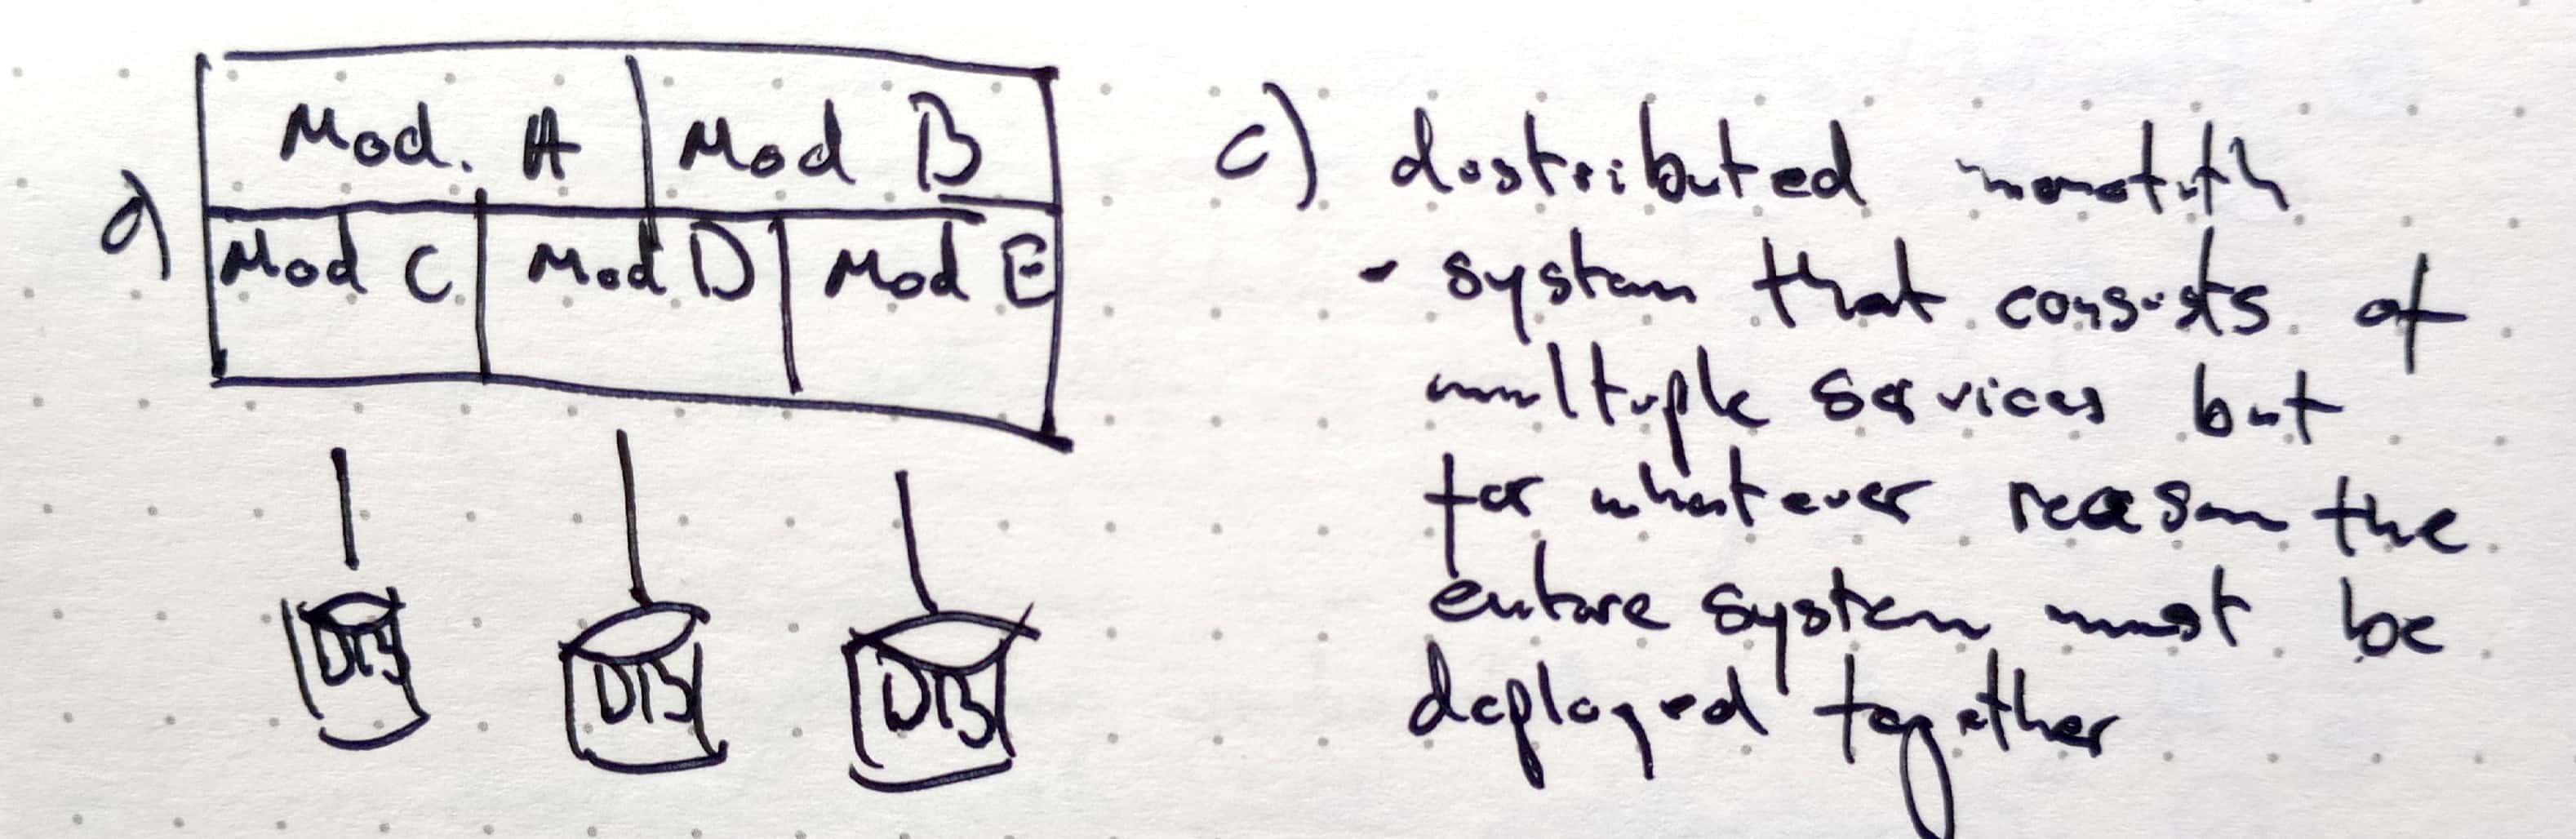 a)
Mod. A Mod B
Mod C Mod D Mod E
DB DB DB
c) distributed monolith
- system that consists of
multiple services but
for whatever reason the
entire system must be
deployed together